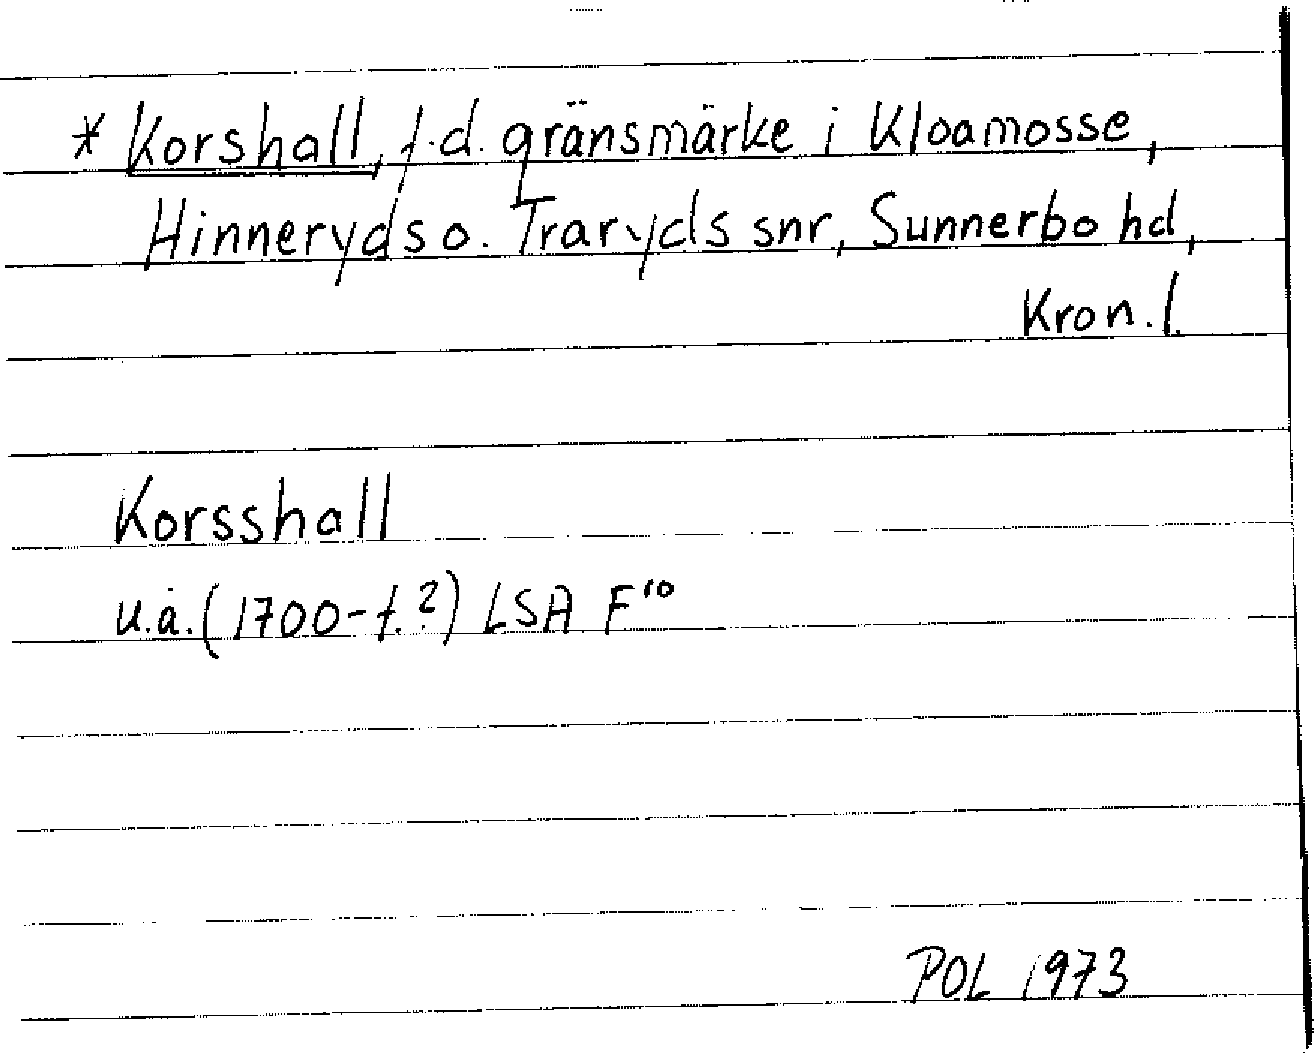 * Korshall, f.d. gränsmärke i Kloamosse,
Hinneryds o. Traryds snr, Sunnerbo hd,
Kron. l.
Korsshall
u.å. (1700-t.?) LSA F¹⁰
POL 1973